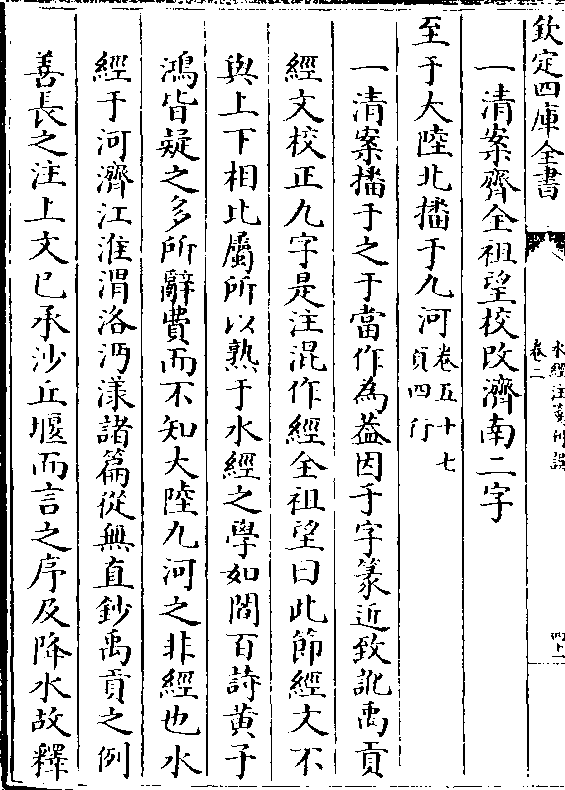 欽定四庫全書
水經注箋刊誤
卷二
四上
一清案齊全祖望校改濟南二字
至于大陸北播于九河卷五十七頁四行
一清案播于之于當作為葢因于字篆近致訛禹貢
經文校正九字是注混作經全祖望曰此節經文不
與上下相比屬所以熟于水經之學如閻百詩黄子
鴻皆疑之多所辭費而不知大陸九河之非經也水
經于河濟江淮渭洛沔漾諸篇從無直鈔禹貢之例
善長之注上文已承沙丘堰而言之序及降水故釋